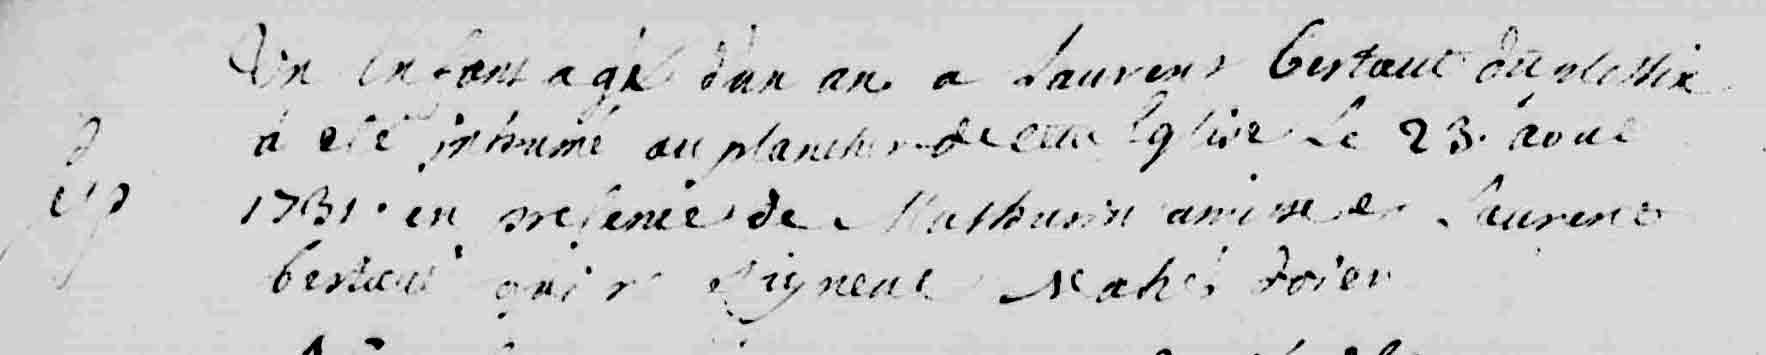 Un enfant agé d'un an a Laurent bertaut du plessix
a eté inhumé au plancher de cette Eglise le 23. aout
1731. en presence de Mathurin amisse et Laurent
bertaut qui ne signent Mahé